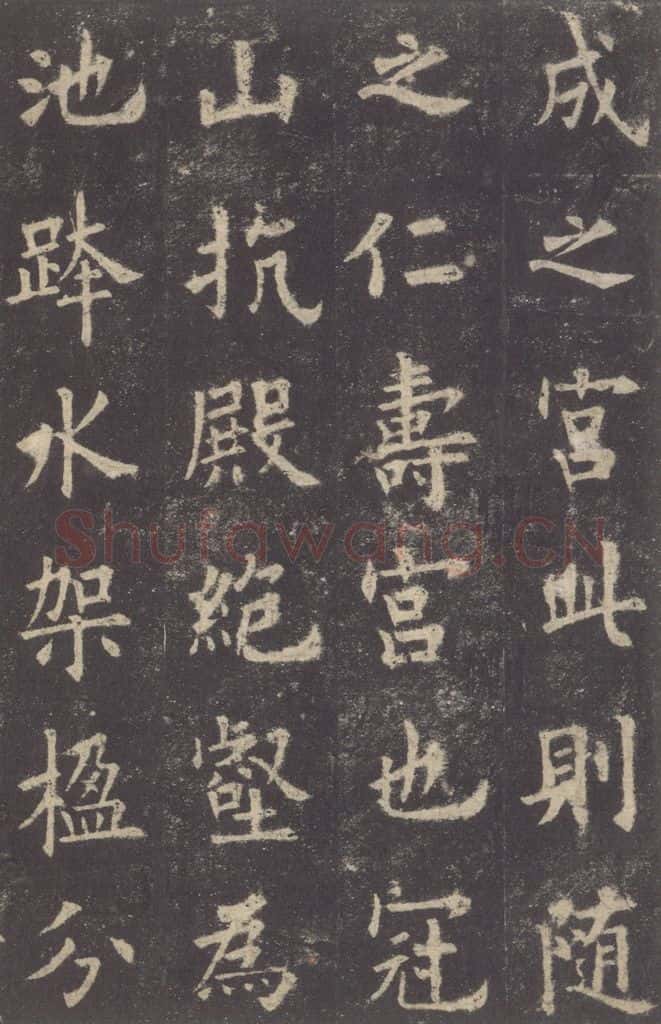 成之宮此則随
之仁壽宮也冠
山抗殿絶壑為
池跨水架楹分
Shufawang.CN